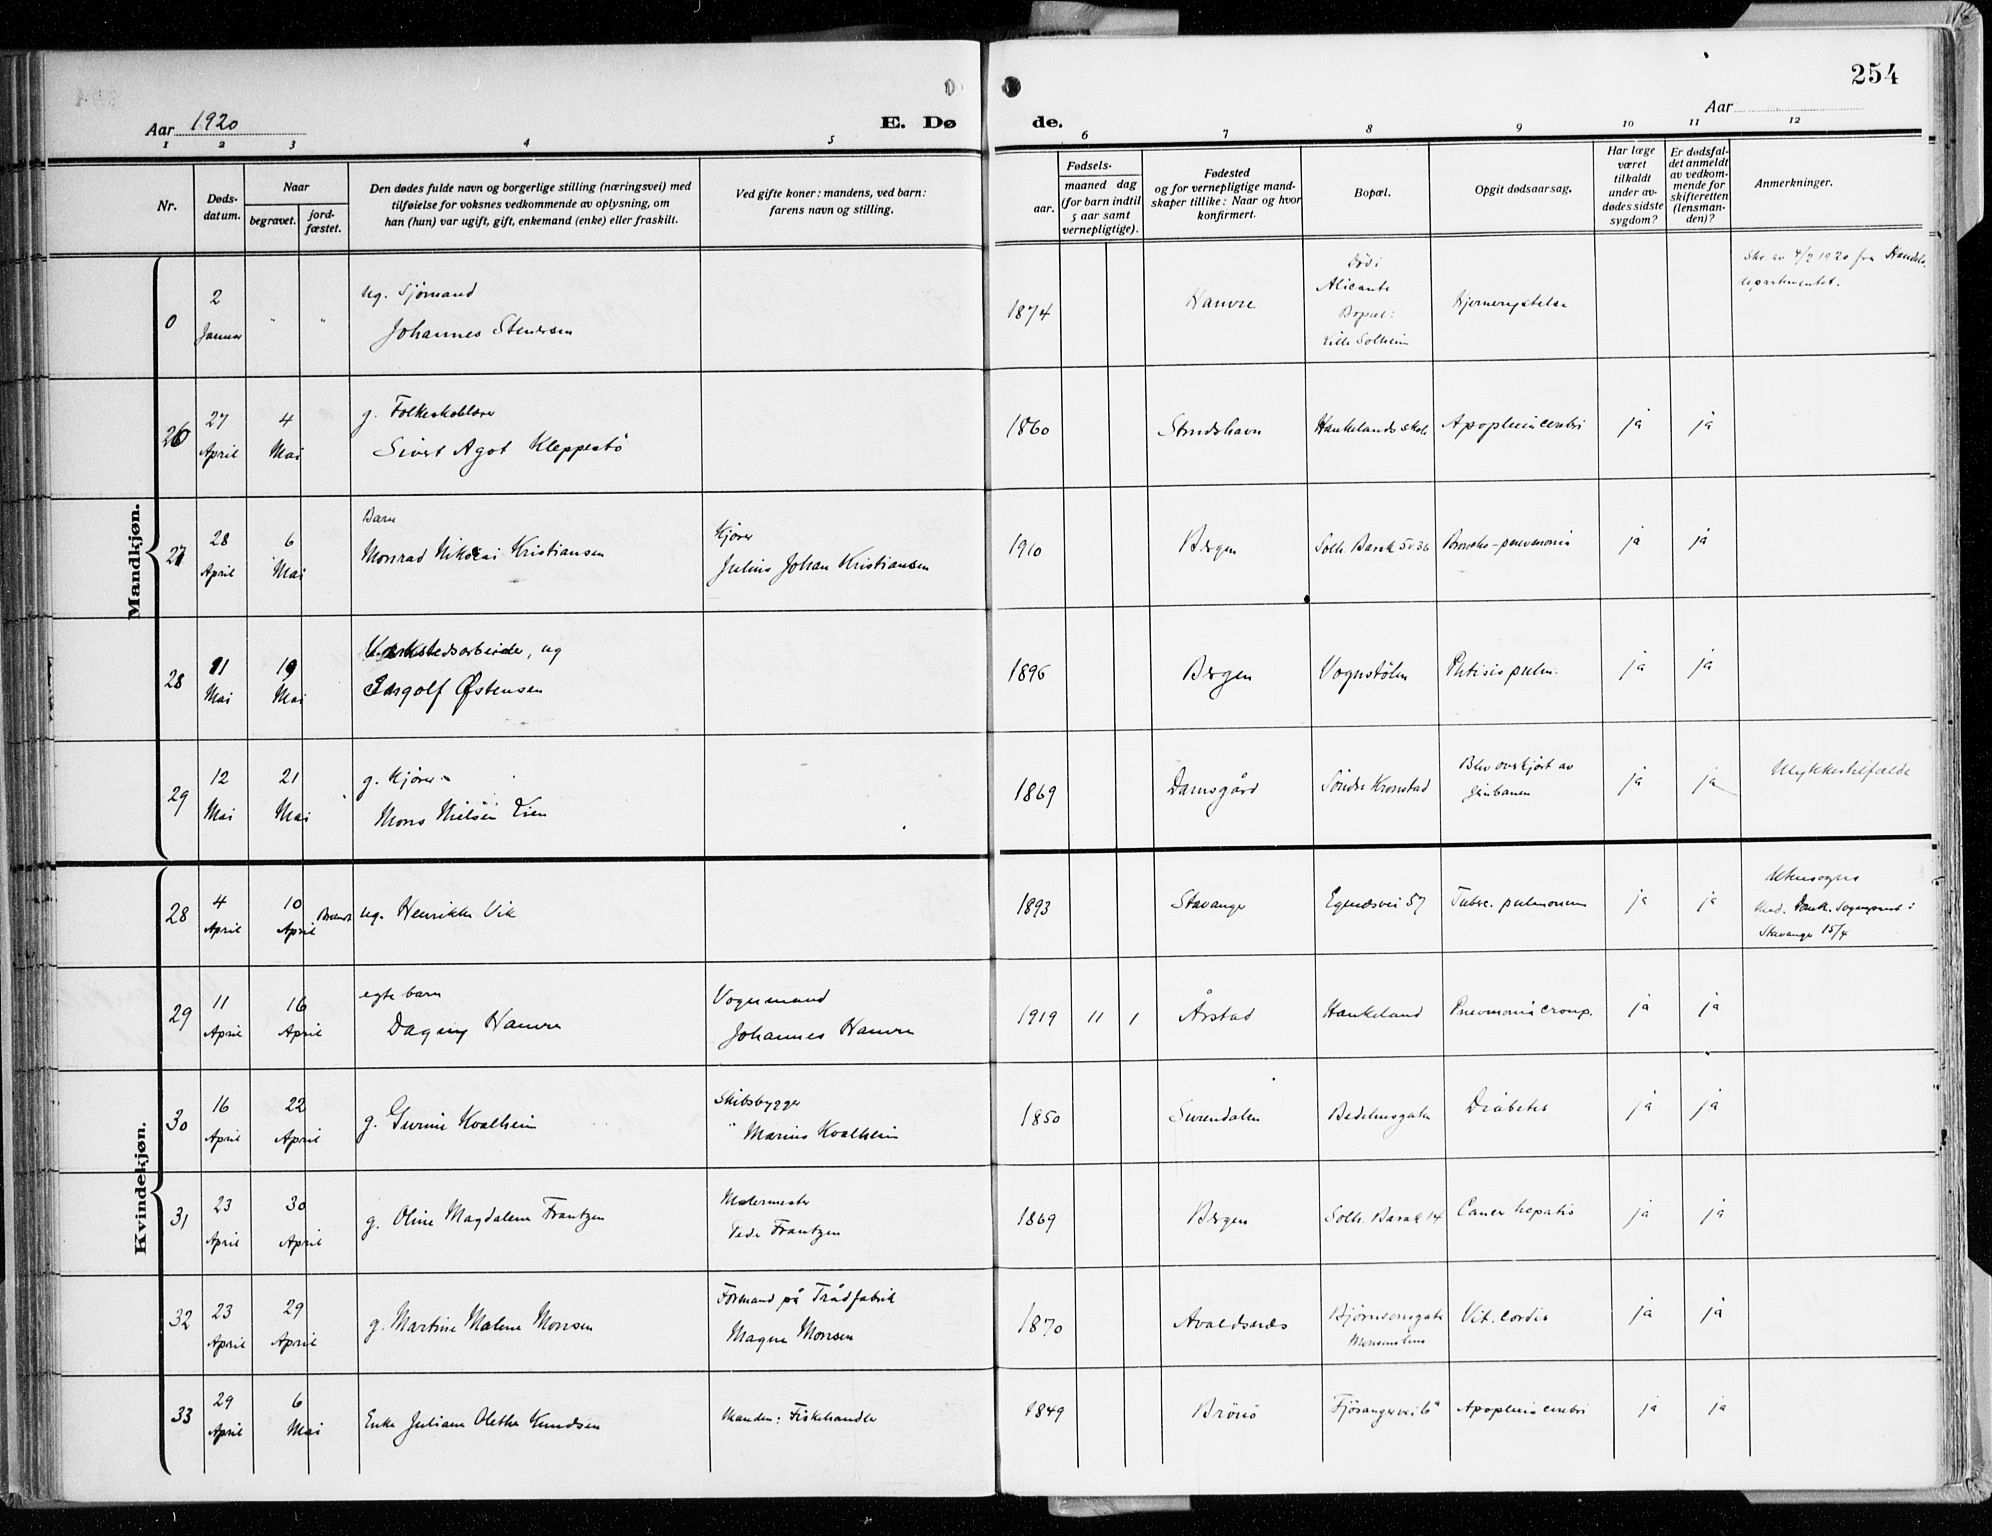 254
Aar 1920
E. Dø
de.
Aar
1 2 3 4 5 6 7 8 9 10 11 12
Nr.
Døds-
datum.
Naar
begravet.
jord-
fæstet.
Den dødes fulde navn og borgerlige stilling (næringsvei) med
tilføielse for voksnes vedkommende av oplysning, om
han (hun) var ugift, gift, enkemand (enke) eller fraskilt.
Ved gifte koner: mandens, ved barn:
farens navn og stilling.
Fødsels-
aar.
maaned dag
(for barn indtil
5 aar samt
vernepligtige).
Fødested
og for vernepligtige mand-
skaper tillike: Naar og hvor
konfirmert.
Bopæl.
Opgit dødsaarsag.
Har læge
været
tilkaldt
under av-
dødes sidste
sygdom?
Er dødsfal-
det anmeldt
av vedkom-
mende for
skifteretten
(lensman-
den)?
Anmerkninger.
Mandkjøn.
0
2
Januar
" "
ug. Sjømand
Johannes Stenersen
1874
Haukere
Død i
Alicante
Bopæl:
Lille Solheim
Hjernerystelse
Skr. av 4/2 1920 fra Handels.
departementet.
26
27 April
4 Mai
g. Folkeskolelærer
Sivert Agot Kleppestö
1860
Strudshavn
Haukelands skole
Apoplexia cerebri
ja ja
27
28 April
6 Mai
Barn
Monrad Nikolai Kristiansen
Kjører
Julius Johan Kristiansen
1910
Bergen
Solh. Barak 5 v 36
Broncho-pneumonia
ja ja
28
11 Mai
19 Mai
Værkstedsarbeider, ug
Ingolf Østensen
1896
Bergen
Vognstölen
Phtisis pulm.
ja ja
29
12 Mai
21 Mai
g. Kjører
Mons Nielsen Lien
1869
Damsgård
Söndre Kronstad
Blev overkjört av
Jernbanen
ja ja
Ulykkestilfælde
Kvindekjøn.
28
4 April
10 April
Brændt
ug. Henrikke Vik
1893
Stavanger
Egnesvei 57
Tuberc. pulmonum
ja ja
Utensogns
Med. Domk. Sogneprest i
Stavanger 15/4
29
11 April
16 April
egte barn
Dagny Haukere
Vognmand
Johannes Haukere
1919 11 1
Årstad
Haukeland
Pneumonia croup.
ja ja
30
16 April
22 April
g. Gurine Kvalheim
Skibsbygger
Marius Kvalheim
1850
Surendalen
Badehusgaten
Diabetes
ja ja
31
23 April
30 April
g. Oline Magdalene Frantzen
Malermester
Peder Frantzen
1869
Bergen
Solh. Barak 14
Cancer hepatis
ja ja
32
23 April
29 April
g. Martine Malene Monsen
Formand på Trådfabrik
Magne Monsen
1870
Avaldsnes
Bjørnsonsgate
Vit. cordis
ja ja
33
29 April
6 Mai
Enke Juliane Olethe Knudsen
Manden: Fiskehandler
1849
Brönö
Fjösangervei 6
Apoplexia cerebri
ja ja